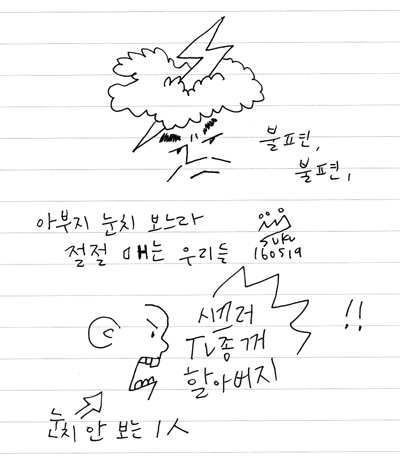 불편,
불편,
아부지 눈치 보느라
절절 매는 우리들
SUKU
160519
시끄러
TV좀꺼
할아버지
!!
눈치 안 보는 1人